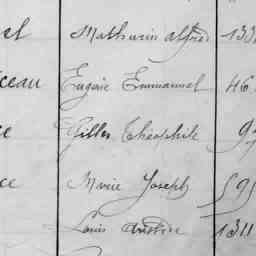 Mathurin Alfred 133
ceau Eugène Emmanuel 46
ce Gilles Théophile 9
ce Marie Joseph 595
Louis 1311